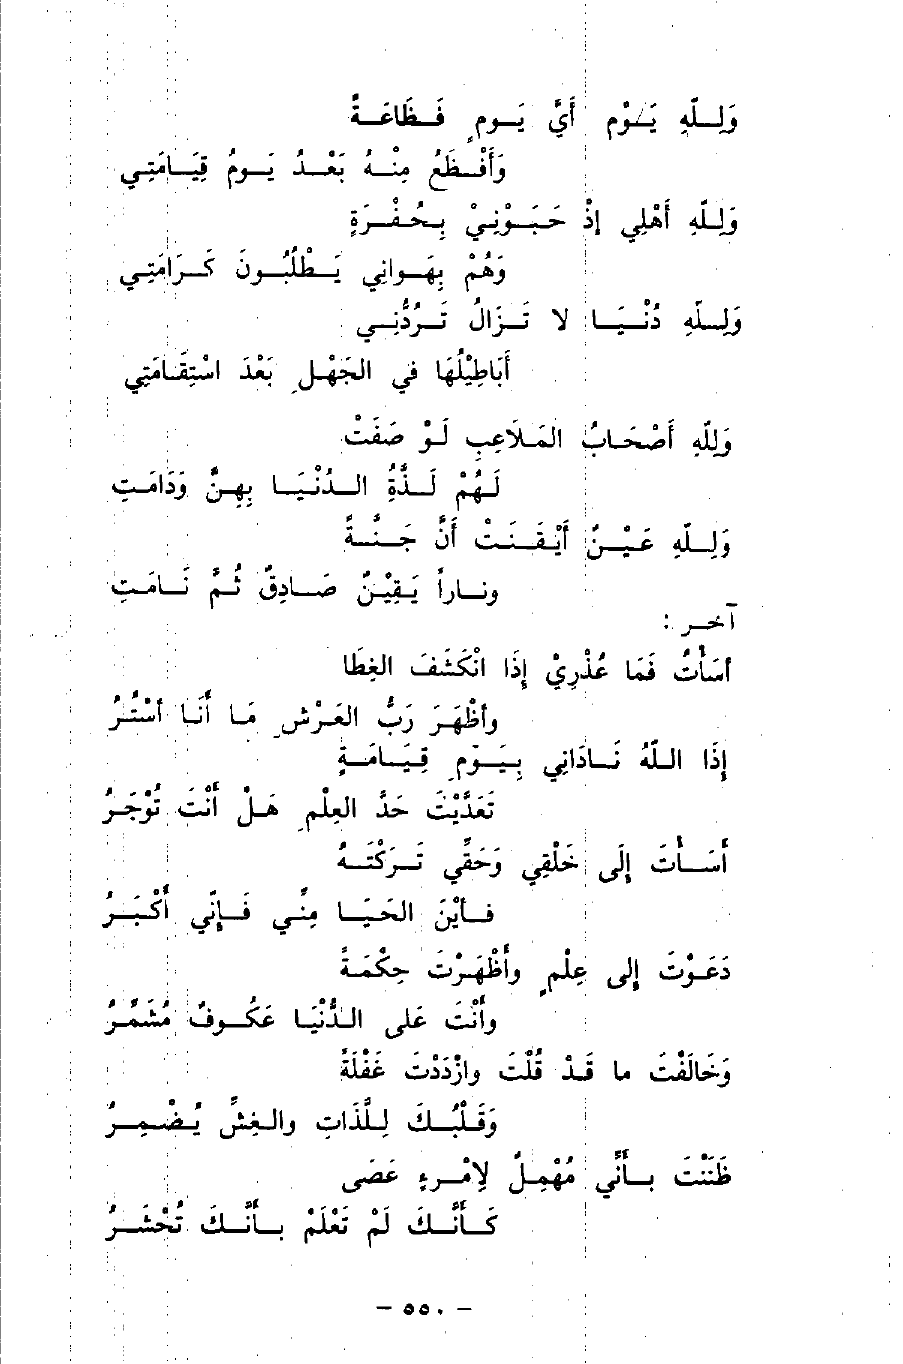 وَلِلَّهِ يَوْمٍ أَيَّ يَومٍ فَظَاعَةً
وَأَفْظَعُ مِنْهُ بَعْدُ يَومُ قِيَامَتِي
وَلِلَّهِ أَهْلِي إِذْ حَبَوْنِيْ بِحُفْرَةٍ
وَهُمْ بِهَوانِي يَطْلُبُونَ كَرَامَتِي
وَلِلَّهِ دُنْيَا لا تَزَالُ تَرُدُّنِي
أَبَاطِيْلُهَا في الجَهْلِ بَعْدَ اسْتِقَامَتِي
وَلِلَّهِ أَصْحَابُ المَلَاعِبِ لَوْ صَفَتْ
لَهُمْ لَذَّةُ الدُنْيَا بِهِنَّ وَدَامَتِ
وَلِلَّهِ عَيْنٌ أَيْقَنَتْ أَنَّ جَنَّةً
وناراً يَقِيْنٌ صَادِقٌ ثُمَّ نَامَتِ
آخر :
أَسَأْتُ فَمَا عُذْرِيْ إِذَا انْكَشَفَ الغِطَا
وأَظْهَرَ رَبُّ العَرْشِ مَا أَنَا أَسْتُرُ
إِذَا اللَّهُ نَادَانِي بِيَوْمِ قِيَامَةٍ
تَعَدَّيْتَ حَدَّ العِلْمِ هَلْ أَنْتَ تُوْجَرُ
أَسَأْتَ إِلَى خَلْقِي وَحَقِّي تَرَكْتَهُ
فأَيْنَ الحَيَا مِنِّي فَإِنِّي أَكْبَرُ
دَعَوْتَ إِلى عِلْمٍ وأَظْهَرْتَ حِكْمَةً
وأَنْتَ عَلى الدُّنْيَا عَكُوفٌ مُشَمِّرُ
وَخَالَفْتَ ما قَدْ قُلْتَ وازْدَدْتَ غَفْلَةً
وَقَلْبُكَ لِلَّذَاتِ والغِشِّ يُضْمِرُ
ظَنَنْتَ بأَنِّي مُهْمِلٌ لِامْرِءٍ عَصَى
كأَنَّكَ لَمْ تَعْلَمْ بأَنَّكَ تُحْشَرُ
– ٥٥٠ –